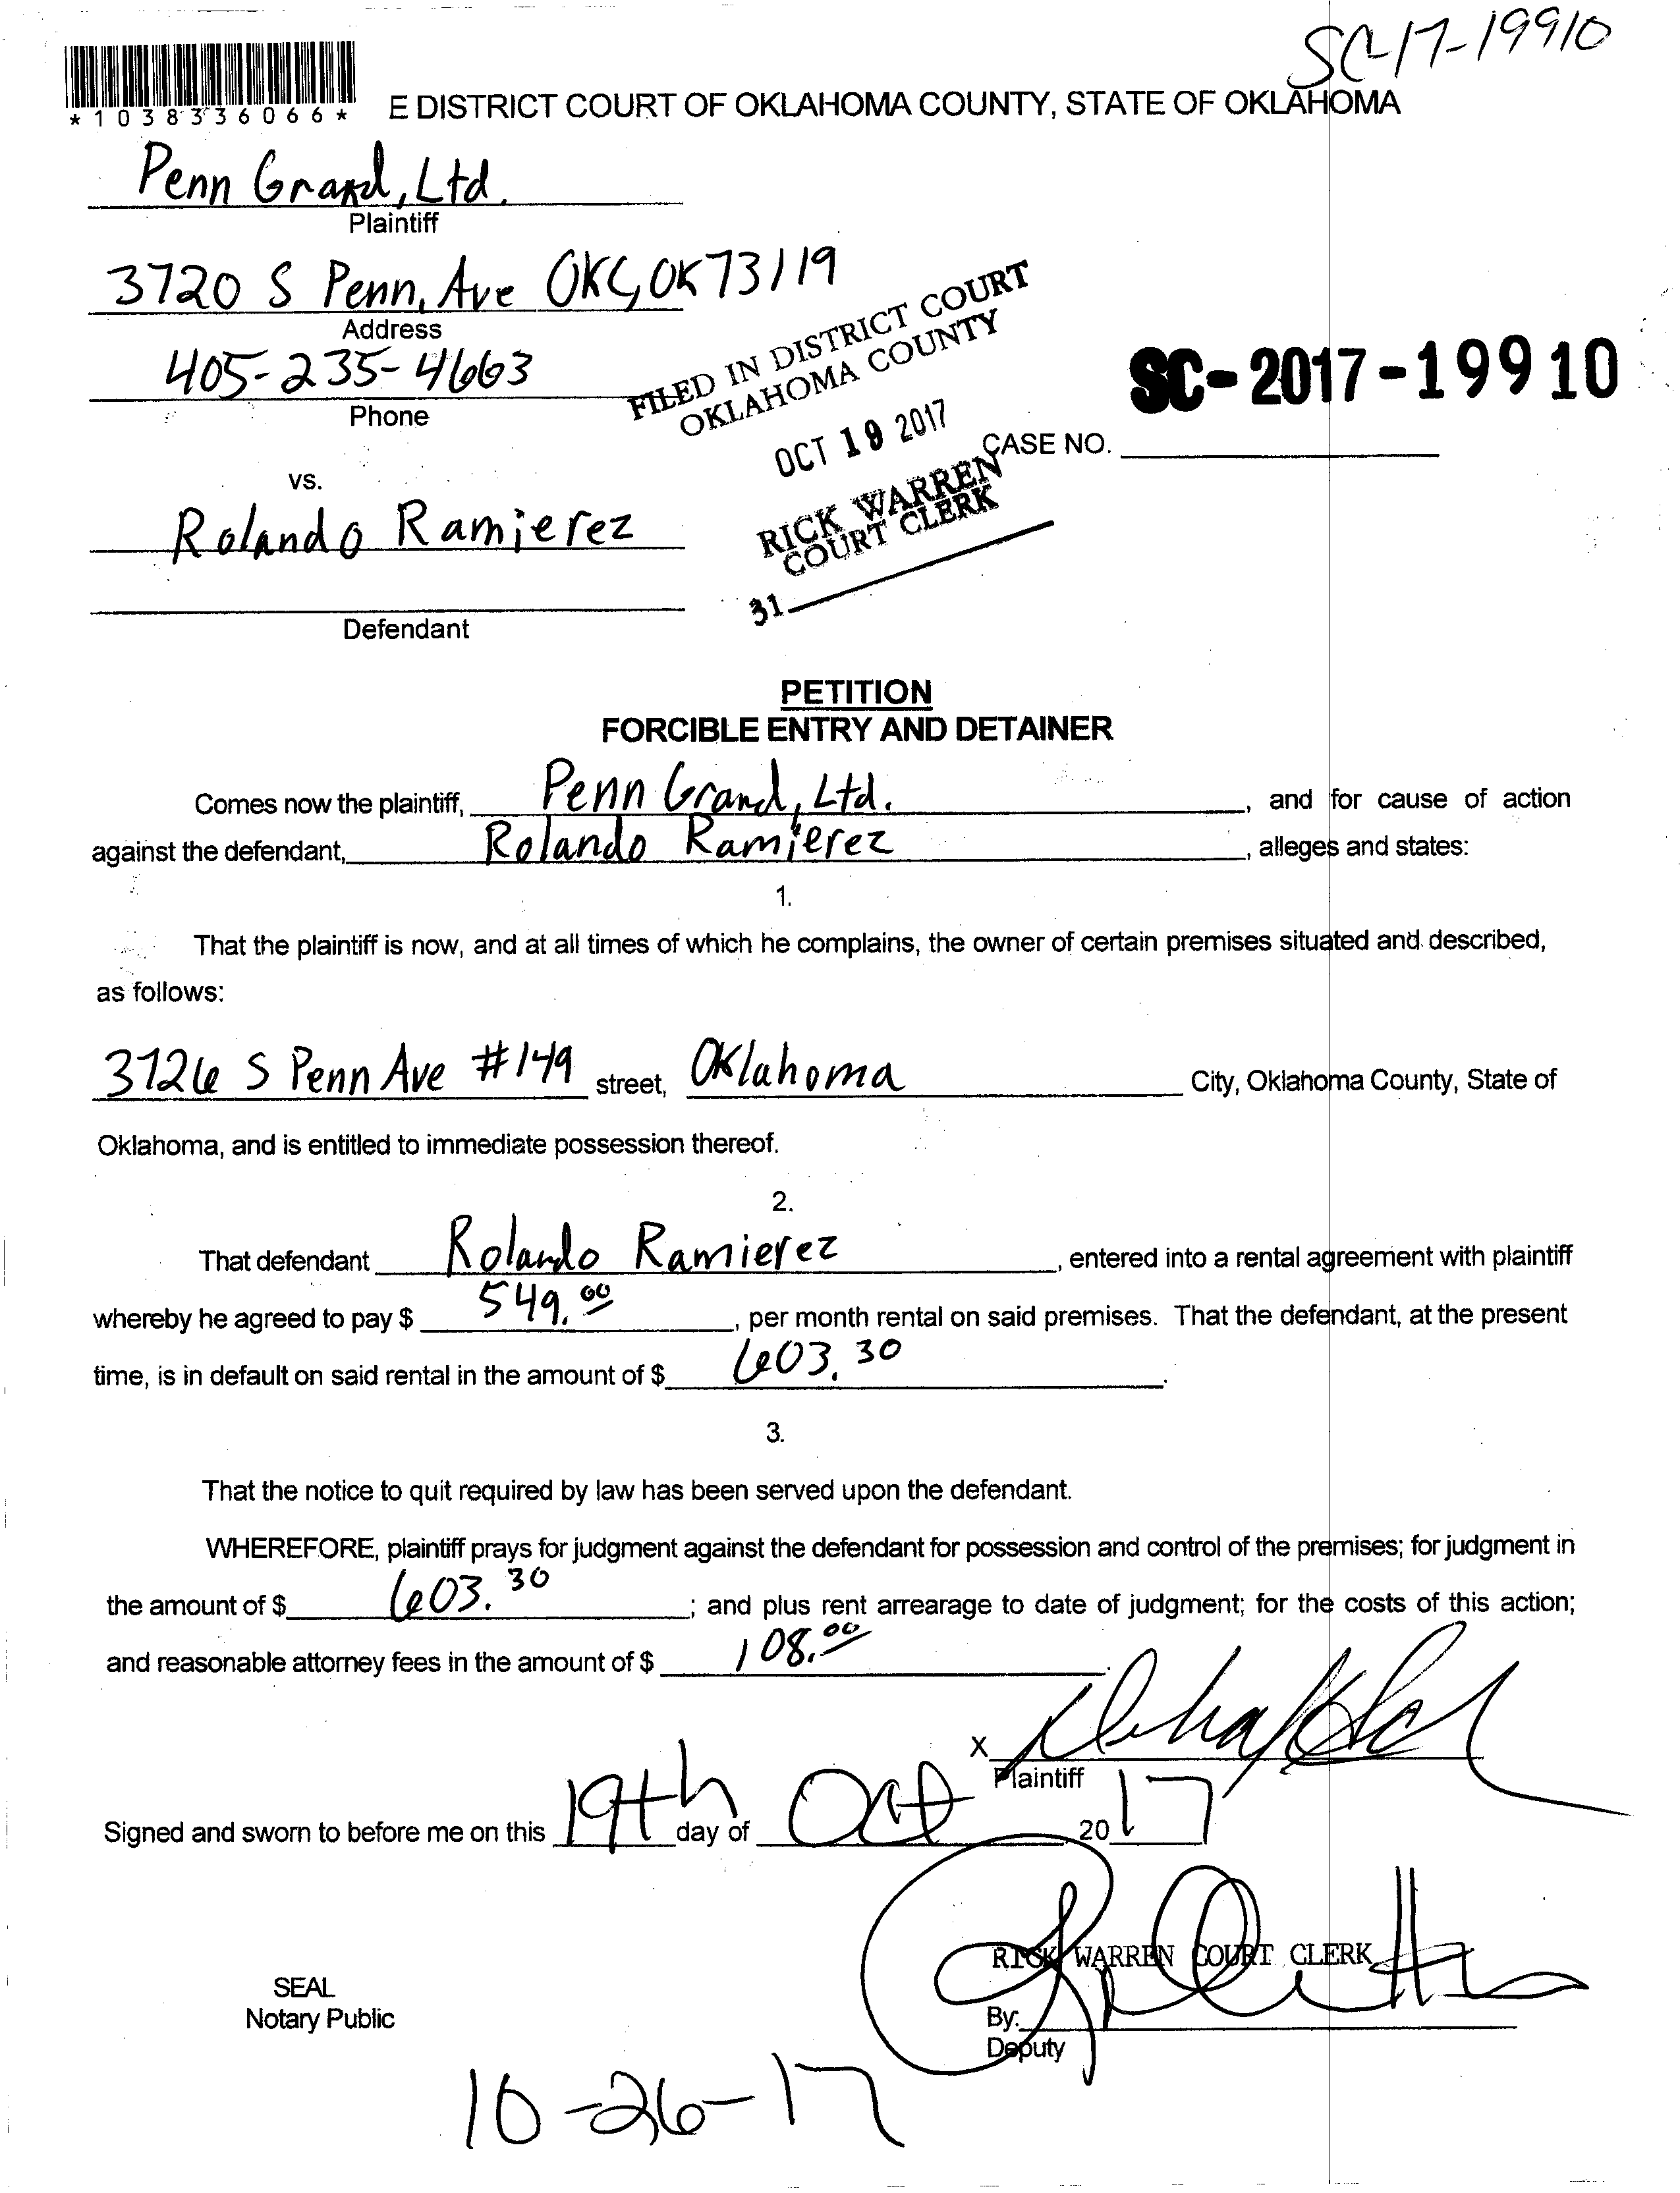 SC-17-19910
*1038336066*
E DISTRICT COURT OF OKLAHOMA COUNTY, STATE OF OKLAHOMA
Penn Grand, Ltd.
Plaintiff
3720 S Penn, Ave OKC, OK 73119
Address
405-235-4663
Phone
FILED IN DISTRICT COURT
OKLAHOMA COUNTY
OCT 19 2017
RICK WARREN
COURT CLERK
31
SC-2017-19910
CASE NO.
vs.
Rolando Ramierez
Defendant
PETITION
FORCIBLE ENTRY AND DETAINER
Comes now the plaintiff, Penn Grand, Ltd., and for cause of action
against the defendant, Rolando Ramierez, alleges and states:
1.
That the plaintiff is now, and at all times of which he complains, the owner of certain premises situated and described,
as follows:
3726 S Penn Ave #149 street, Oklahoma City, Oklahoma County, State of
Oklahoma, and is entitled to immediate possession thereof.
2.
That defendant Rolando Ramierez, entered into a rental agreement with plaintiff
whereby he agreed to pay $ 549.00, per month rental on said premises. That the defendant, at the present
time, is in default on said rental in the amount of $ 603.30.
3.
That the notice to quit required by law has been served upon the defendant.
WHEREFORE, plaintiff prays for judgment against the defendant for possession and control of the premises; for judgment in
the amount of $ 603.30; and plus rent arrearage to date of judgment; for the costs of this action;
and reasonable attorney fees in the amount of $ 108.00.
X
Plaintiff
Signed and sworn to before me on this 19th day of Oct, 2017
RICK WARREN COURT CLERK
SEAL
Notary Public
By:
Deputy
10-26-17